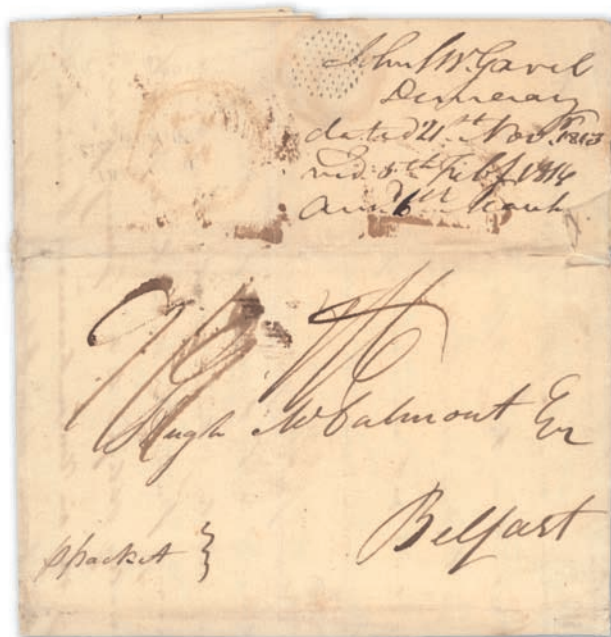 John McGavel
Demeray
dated 21st Novr. 1813
recd. 8th Feby 1814
6th
Hugh McCalmont Esr
Belfast
packet